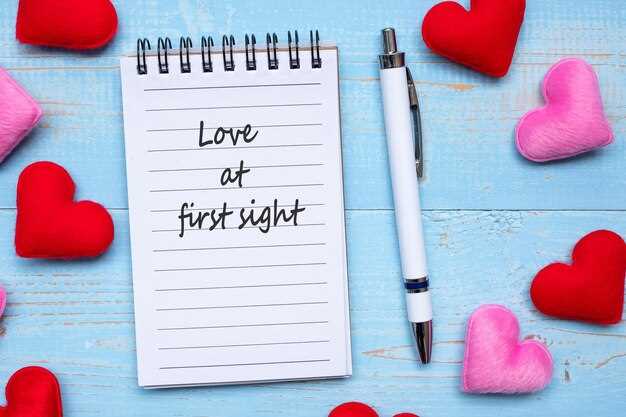 Love
at
first sight